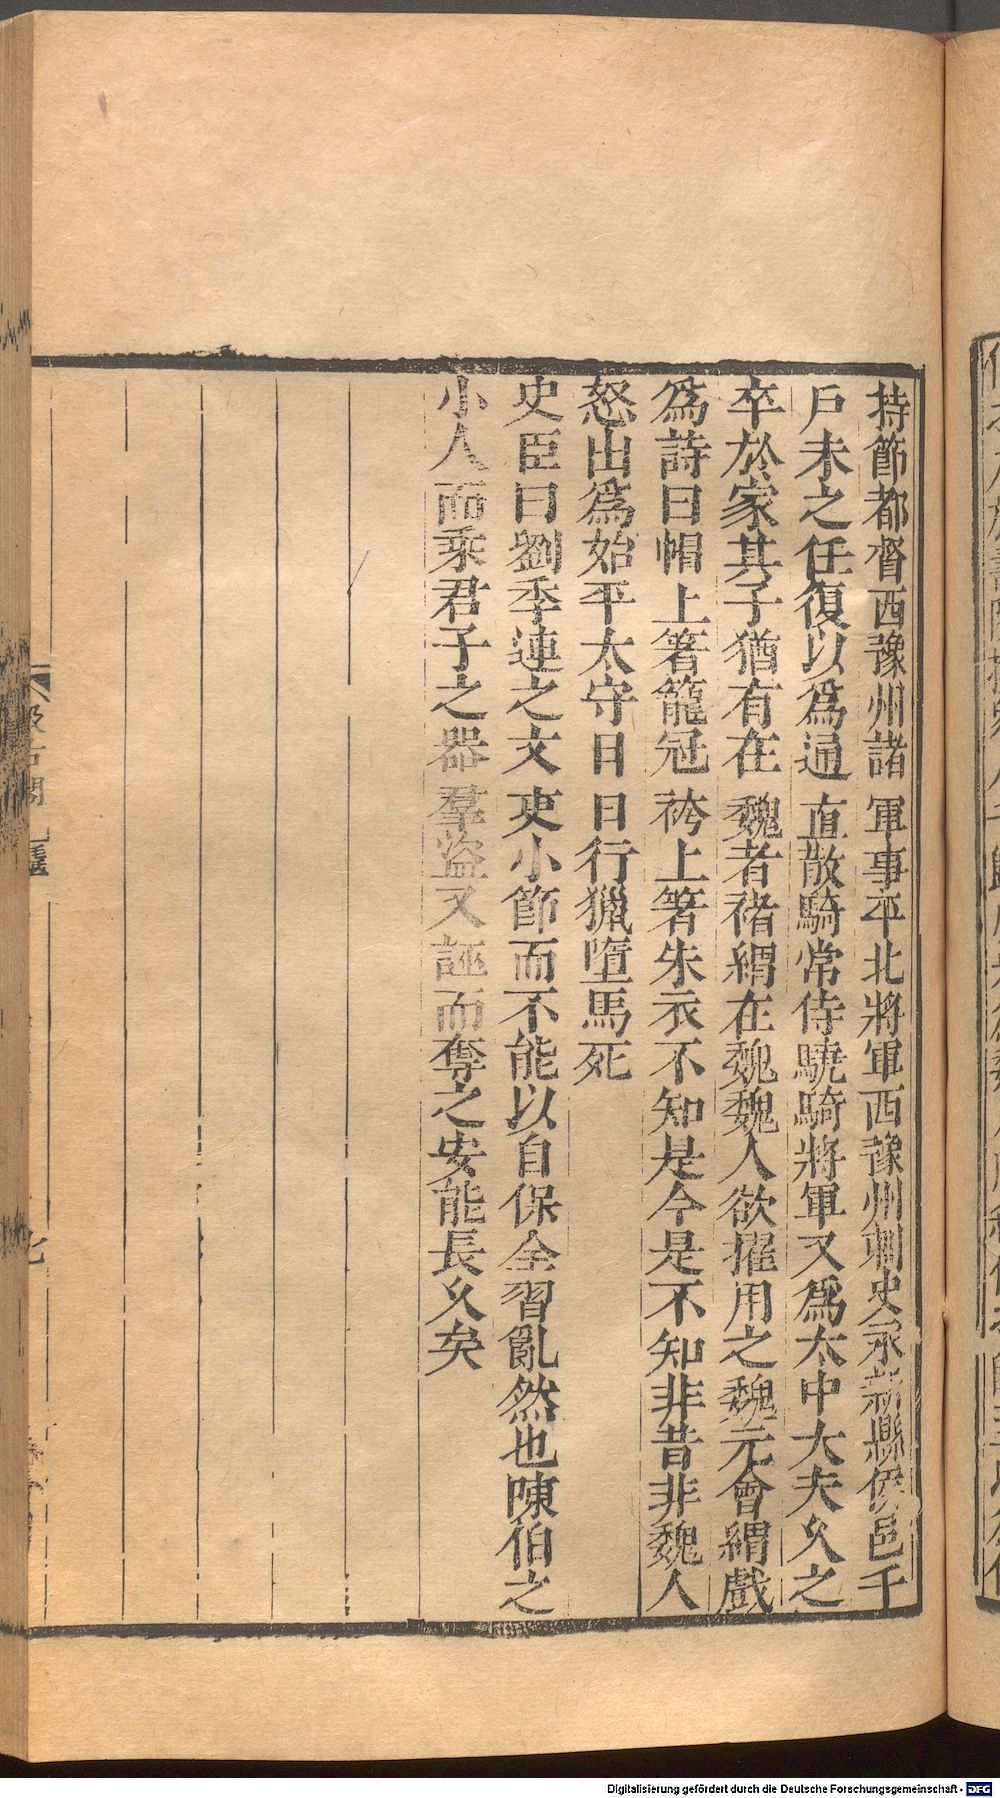 持節都督西豫州諸軍事平北將軍西豫州刺史永新縣侯邑千
戶未之任復以爲通直散騎常侍驍騎將軍又爲太中大夫久之
卒於家其子猶有在魏者禇緭在魏魏人欲擢用之魏元會緭戲
爲詩曰帽上箸籠冠袴上箸朱衣不知是今是不知非昔非魏人
怒出爲始平太守日日行獵墮馬死
史臣曰劉季連之文吏小節而不能以自保全習亂然也陳伯之
小人而乘君子之器羣盜又誣而奪之安能長久矣
Digitalisierung gefördert durch die Deutsche Forschungsgemeinschaft - DFG